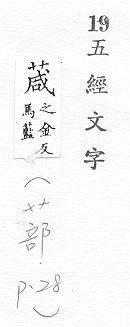 19
五經文字
葴 之金反
馬藍
(艹部. p.28)